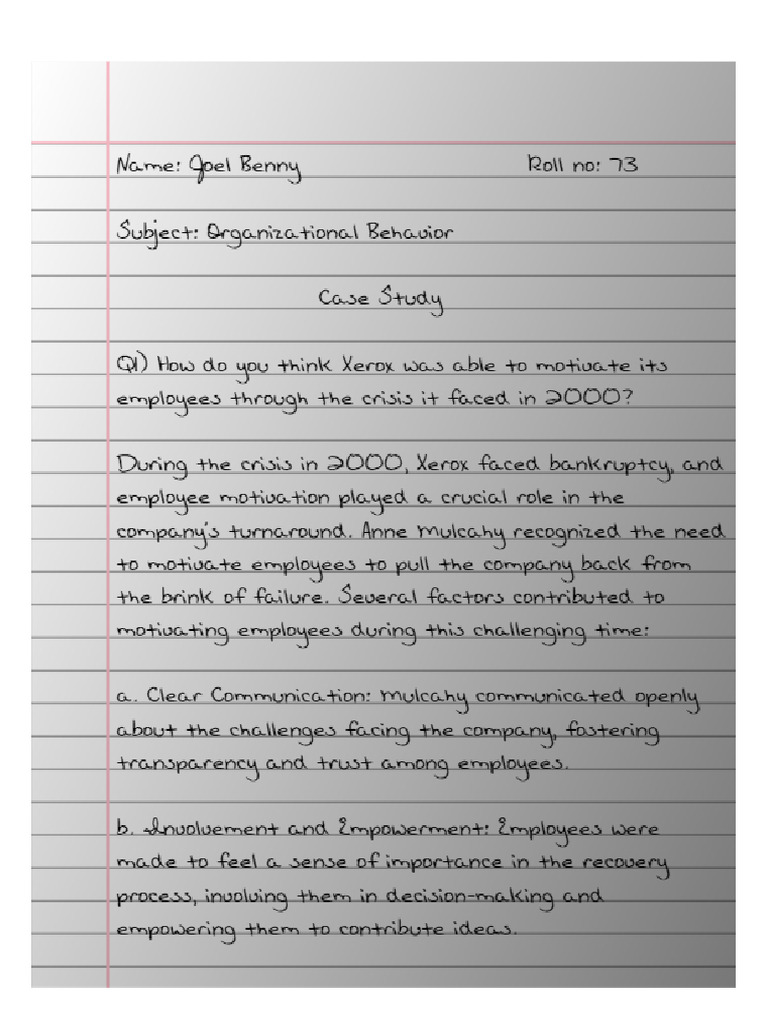 Name: Joel Benny Roll no: 73
Subject: Organizational Behavior
Case Study
Q1) How do you think Xerox was able to motivate its
employees through the crisis it faced in 2000?
During the crisis in 2000, Xerox faced bankruptcy, and
employee motivation played a crucial role in the
company's turnaround. Anne Mulcahy recognized the need
to motivate employees to pull the company back from
the brink of failure. Several factors contributed to
motivating employees during this challenging time:
a. Clear Communication: Mulcahy communicated openly
about the challenges facing the company, fostering
transparency and trust among employees.
b. Involvement and Empowerment: Employees were
made to feel a sense of importance in the recovery
process, involving them in decision-making and
empowering them to contribute ideas.